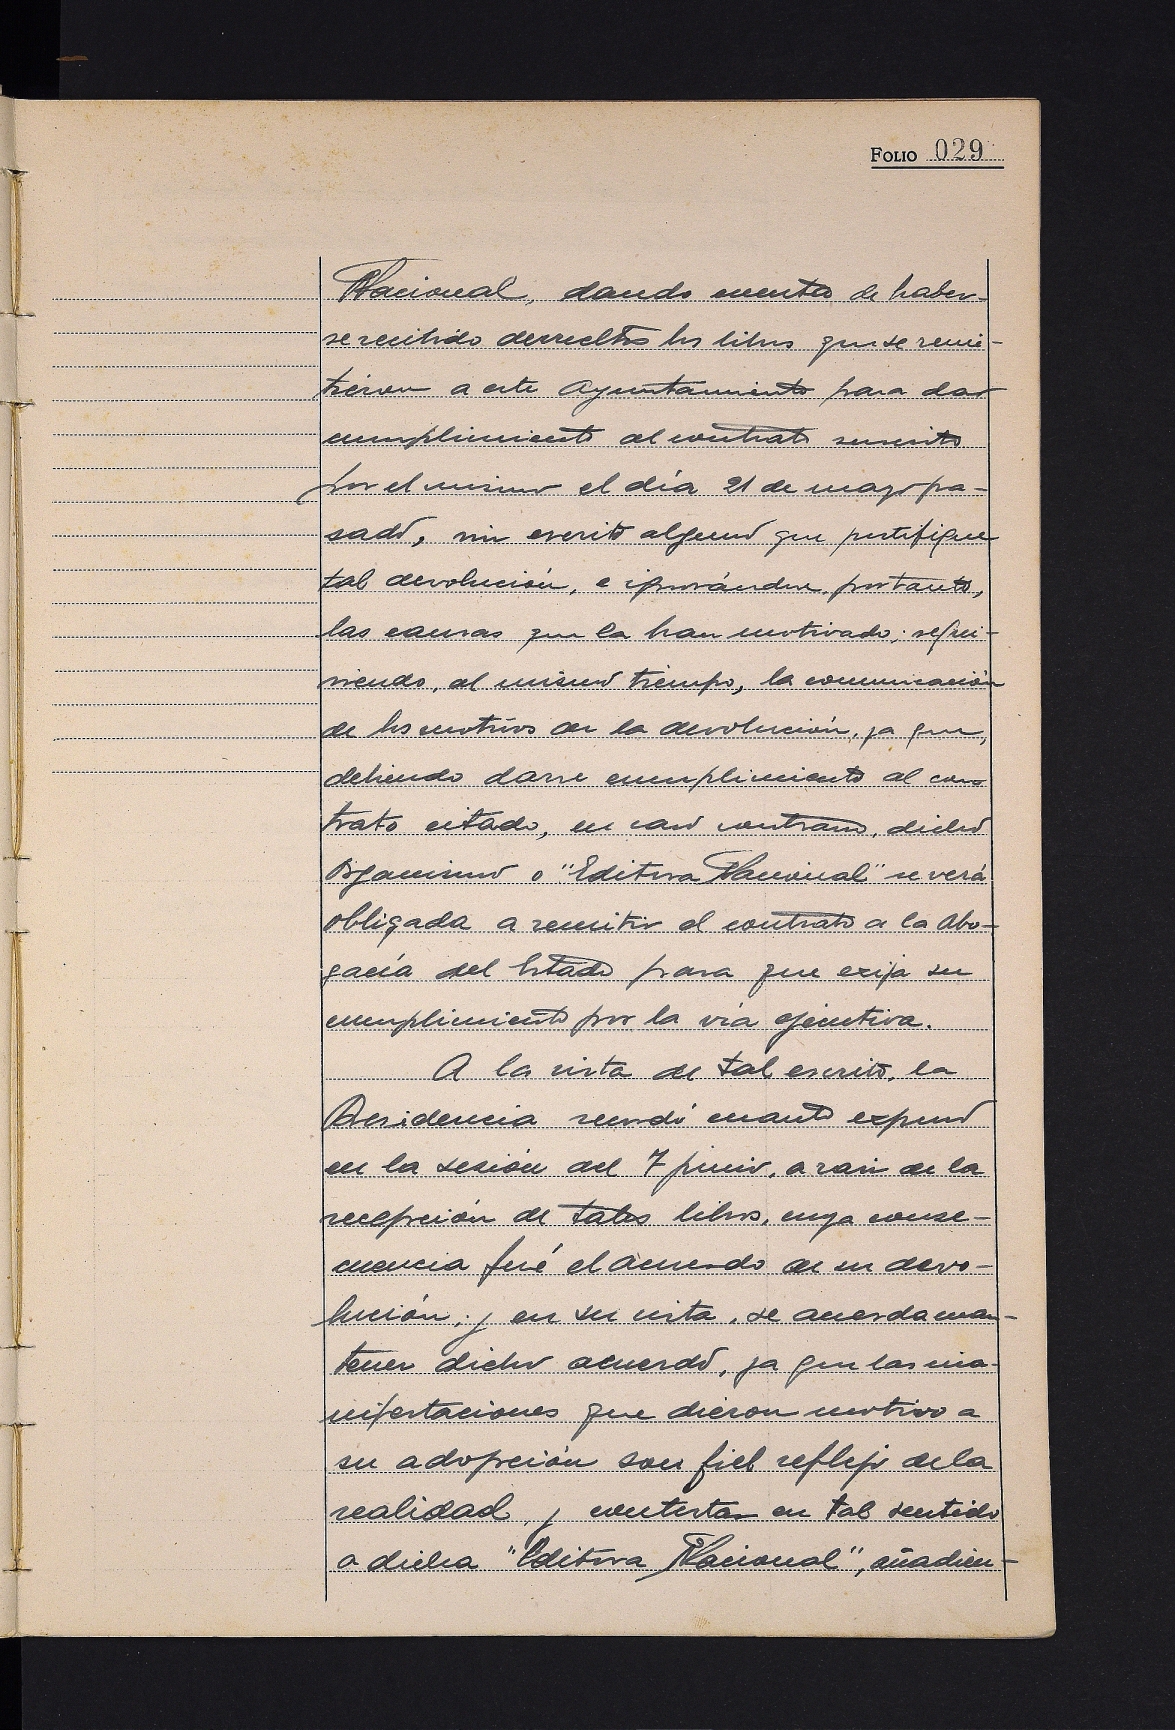 FOLIO 029
Nacional, dando cuenta de haber-
se recibido devueltos los libros que se remi-
tieron a este Ayuntamiento para dar
cumplimiento al contrato suscrito
por el mismo el día 21 de mayo pa-
sado, sin escrito alguno que justifique
tal devolución, e ignorándose, por tanto,
las causas que la han motivado; requi-
riendo, al mismo tiempo, la comunicación
de los motivos de la devolución, ya que,
debiendo darse cumplimiento al con-
trato citado, en caso contrario, dicho
Organismo o "Editora Nacional" se verá
obligada a remitir el contrato a la Abo-
gacía del Estado para que exija su
cumplimiento por la vía ejecutiva.
A la vista de tal escrito, la
Presidencia recordó cuanto expuso
en la sesión del 7 junio, a raíz de la
recepción de tales libros, cuya conse-
cuencia fué el acuerdo de su devo-
lución; y en su vista, se acuerda man-
tener dicho acuerdo, ya que las ma-
nifestaciones que dieron motivo a
su adopción son fiel reflejo de la
realidad, y contestar en tal sentido
a dicha "Editora Nacional", añadien-